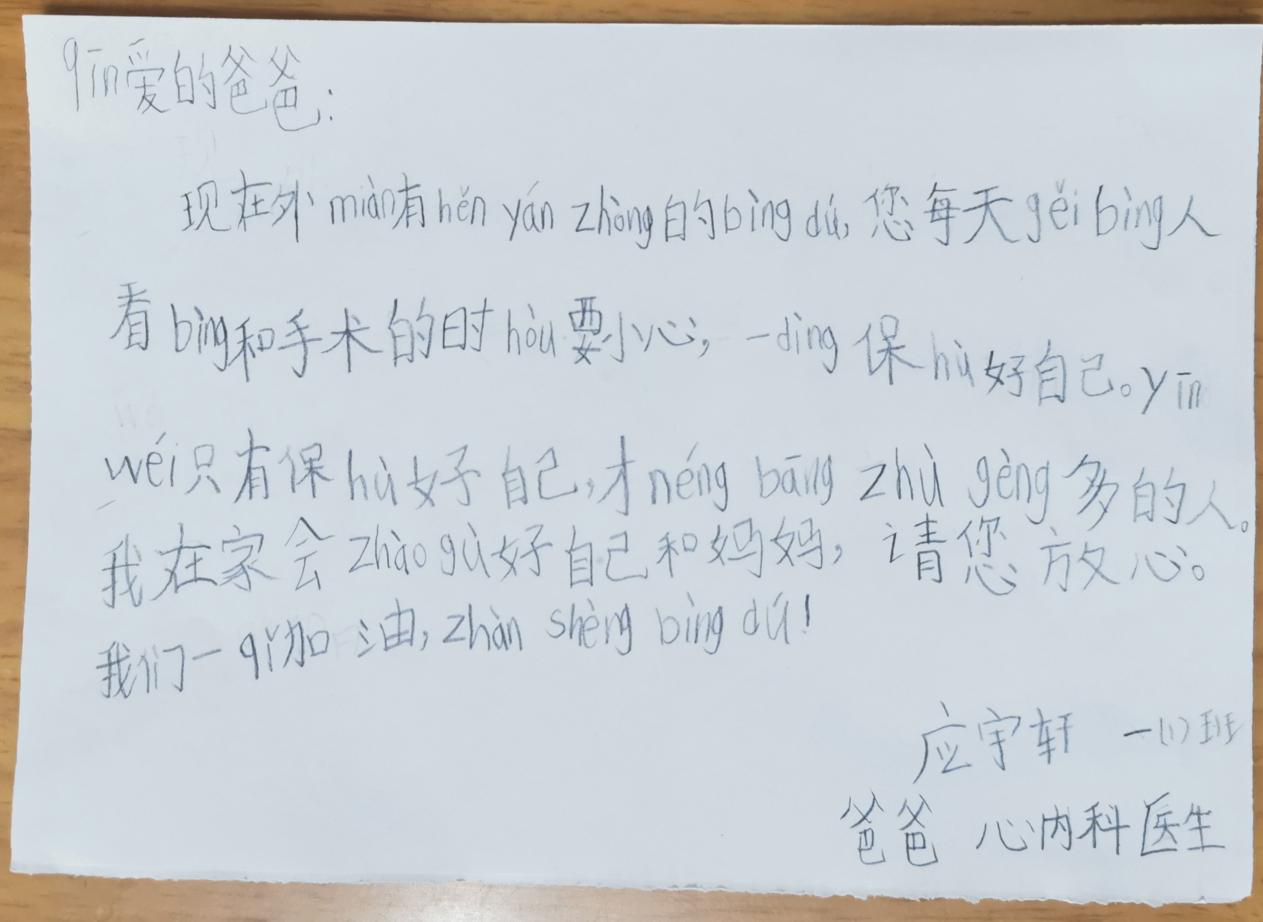 qīn爱的爸爸：
现在外miàn有hěn yán zhòng的bìng dú，您每天gěi bìng人
看bìng和手术的时hòu要小心，一dìng保hù好自己。yīn
wéi只有保hù好自己，才néng bāng zhù gèng多的人。
我在家会zhào gù好自己和妈妈，请您放心。
我们一qǐ加油，zhàn shèng bìng dú！
应宇轩 一(1)班
爸爸 心内科医生